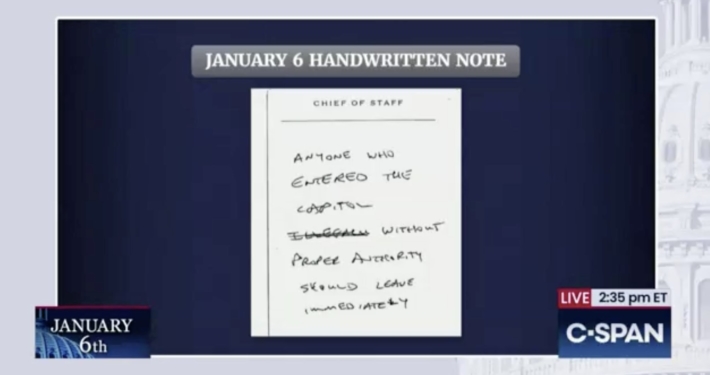 JANUARY 6 HANDWRITTEN NOTE
CHIEF OF STAFF
ANYONE WHO
ENTERED THE
CAPITOL
ILLEGALLY WITHOUT
PROPER AUTHORITY
SHOULD LEAVE
IMMEDIATELY
JANUARY
6th
LIVE 2:35 pm ET
C-SPAN